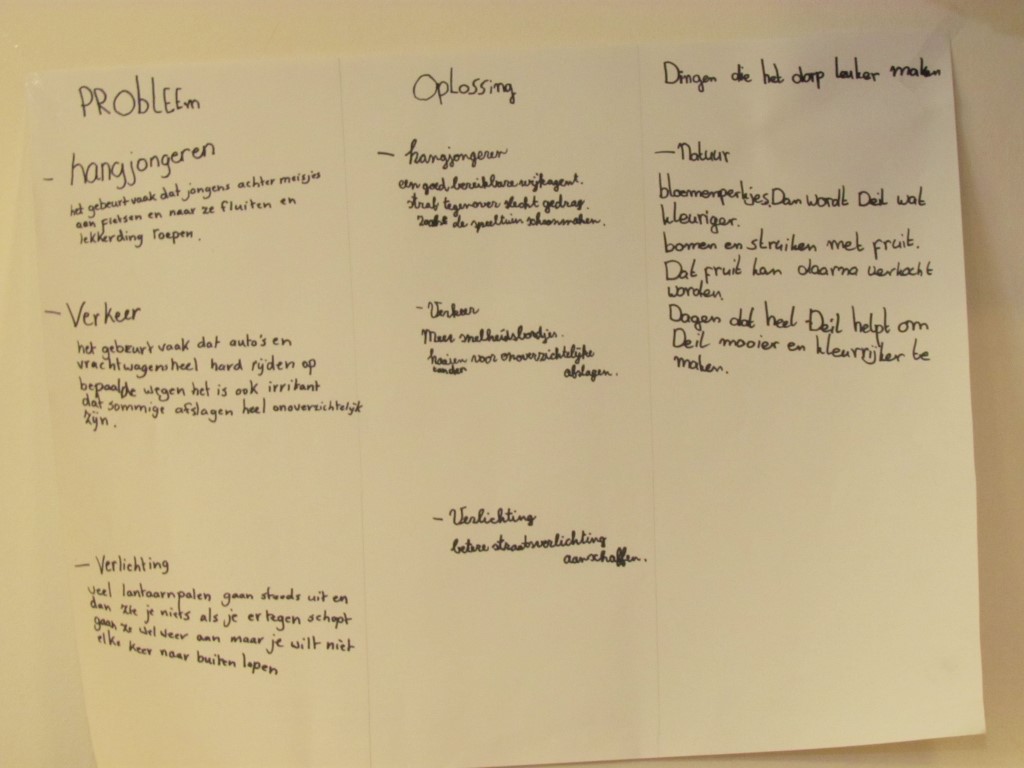 PRObLEEm
- hangjongeren
het gebeurt vaak dat jongens achter meisjes
aan fietsen en naar ze fluiten en
lekkerding roepen.
- Verkeer
het gebeurt vaak dat auto's en
vrachtwagens heel hard rijden op
bepaalde wegen het is ook irritant
dat sommige afslagen heel onoverzichtelijk
zijn.
- Verlichting
veel lantaarnpalen gaan steeds uit en
dan zie je niets als je er tegen schopt
gaan ze wel weer aan maar je wilt niet
elke keer naar buiten lopen
Oplossing
- hangjongeren
een goed, bereikbare wijkagent.
straf tegenover slecht gedrag.
zoals de speeltuin schoonmaken.
- Verkeer
Meer snelheidsbordjes.
voor onoverzichtelijke
afslagen.
- Verlichting
betere straatverlichting
aanschaffen.
Dingen die het dorp leuker maken
- Natuur
bloemenperkjes. Dan wordt Deil wat
kleuriger.
bomen en struiken met fruit.
Dat fruit kan daarna verkocht
worden.
Dagen dat heel Deil helpt om
Deil mooier en kleurrijker te
maken.